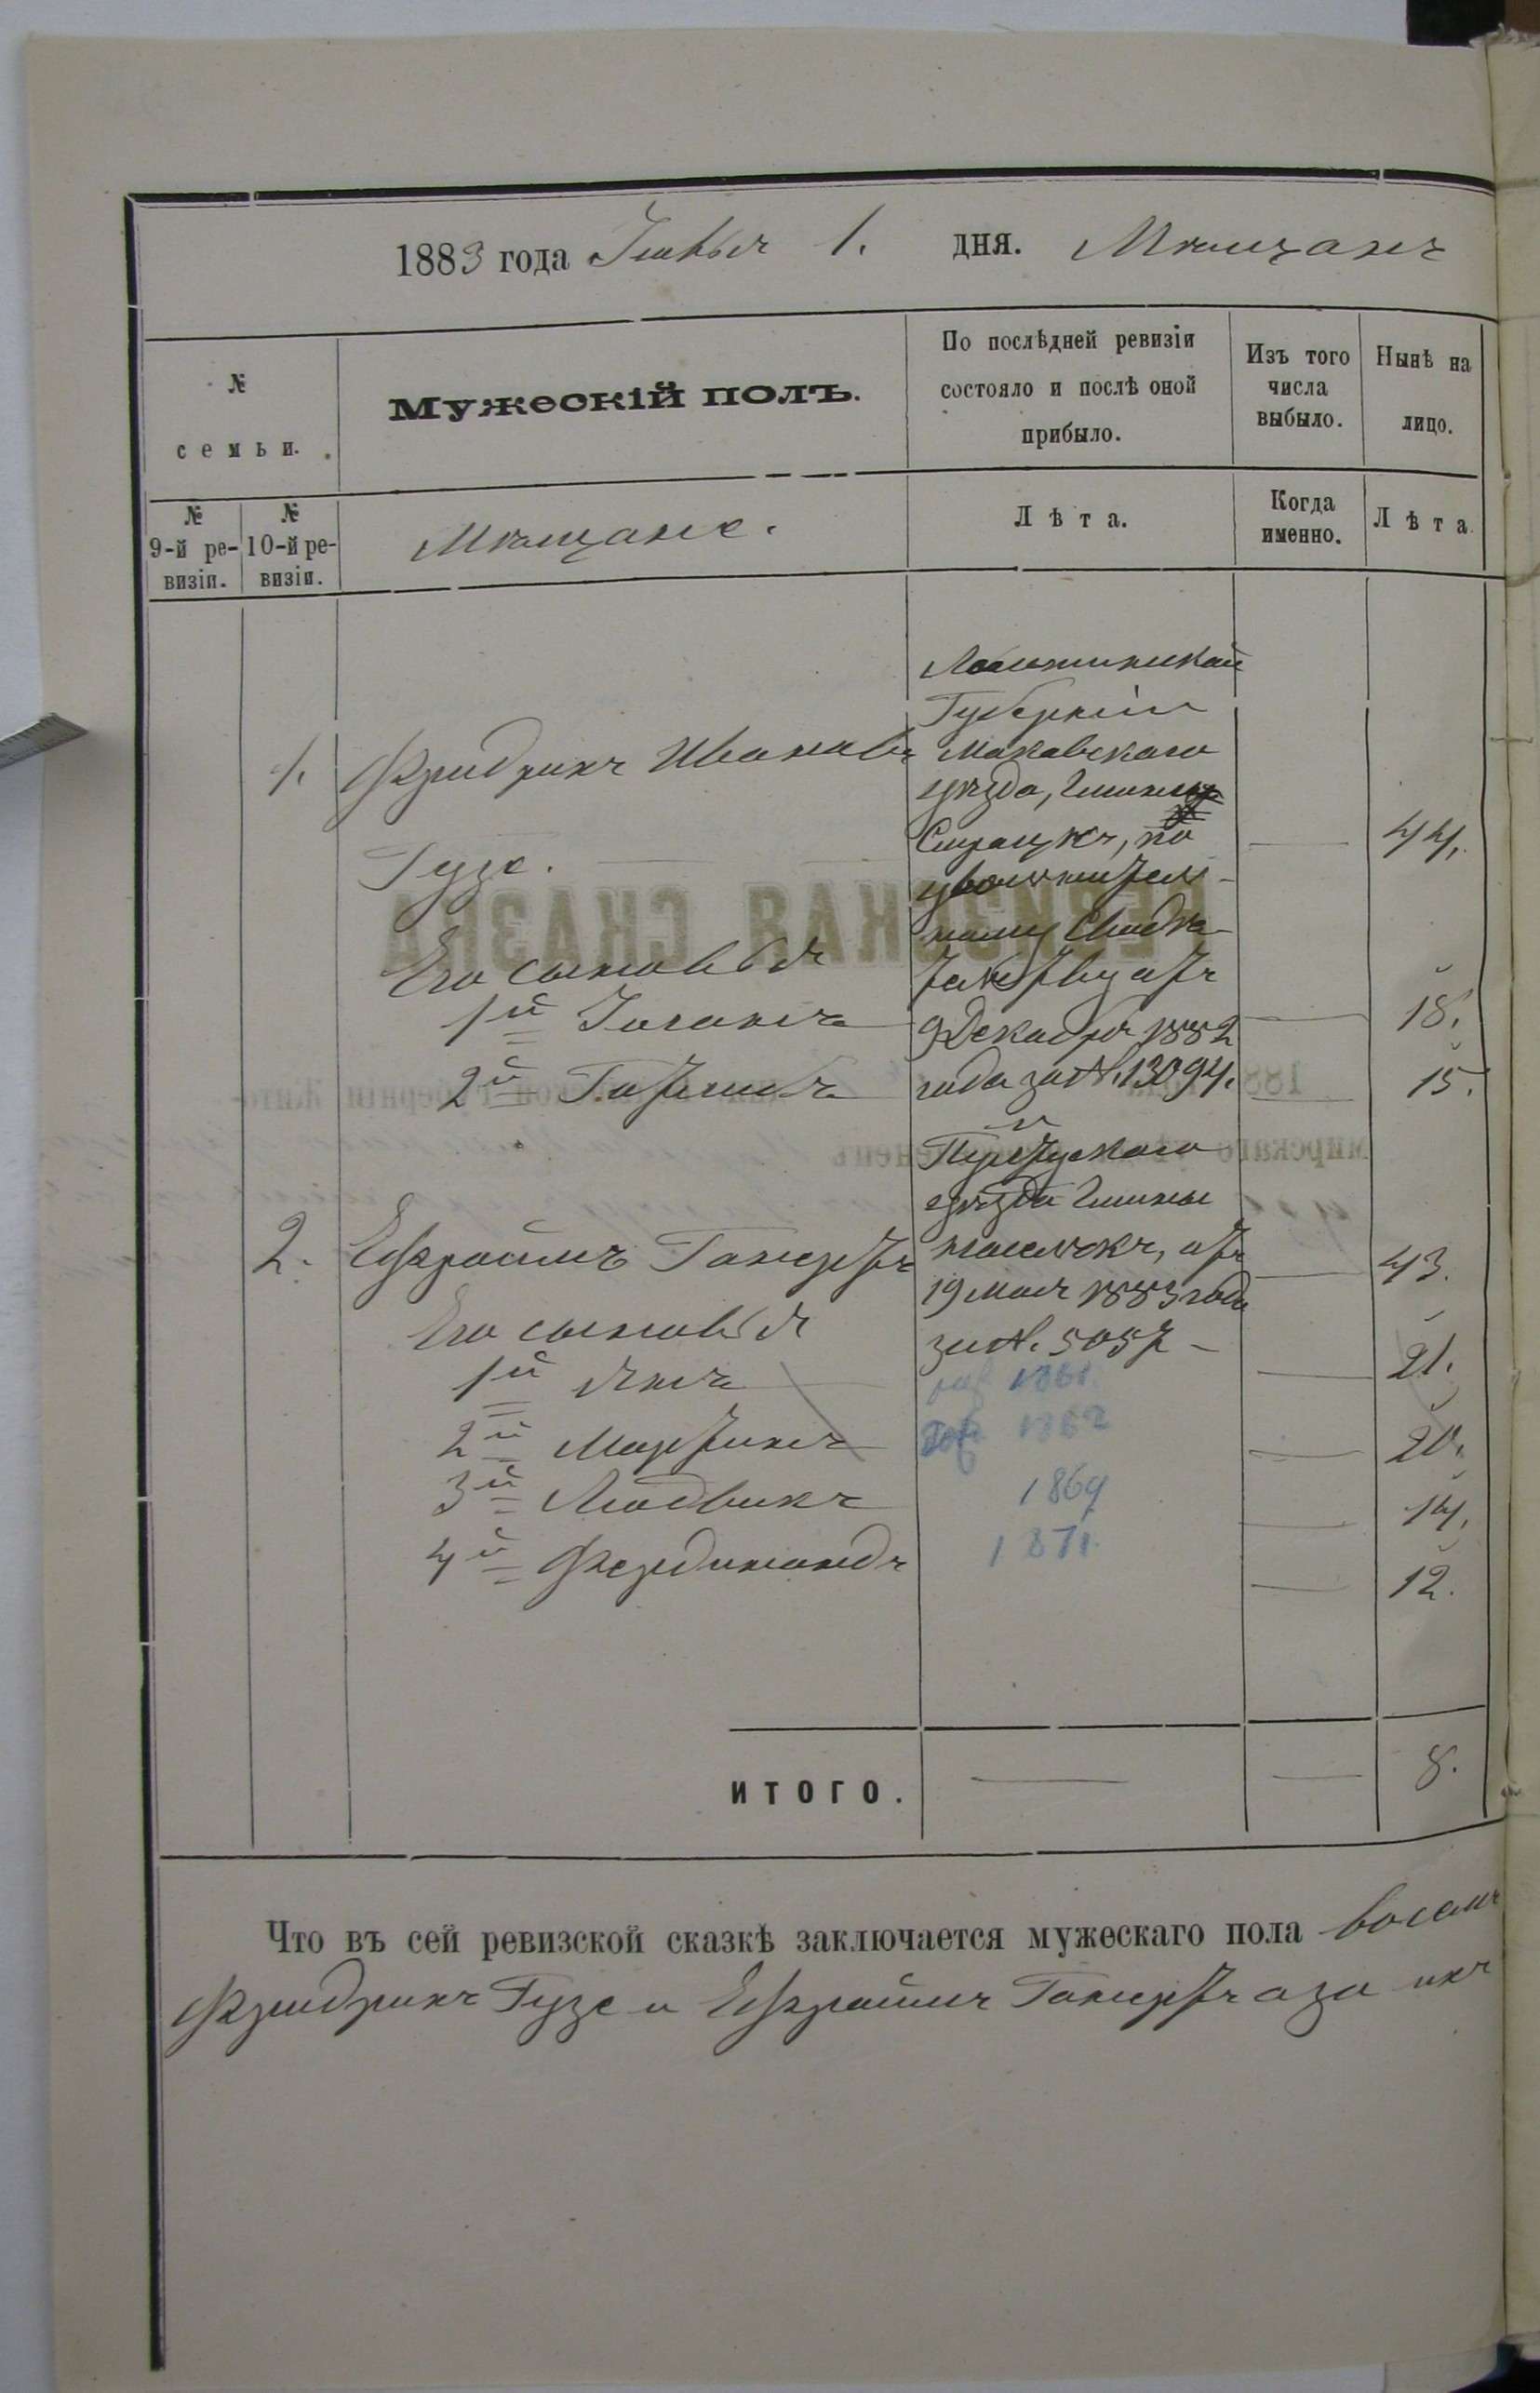 1883 года Іюня 1. дня. Мѣщанъ
№
семьи.
Мужескій полъ.
По послѣдней ревизіи
состояло и послѣ оной
прибыло.
Изъ того
числа
выбыло.
Нынѣ на
лицо.
№
9-й ре-
визіи.
№
10-й ре-
визіи.
Мѣщане.
Лѣта.
Когда
именно.
Лѣта
Ломжинской
Губерніи
1. Фридрихъ Ивановъ Маковскаго
уѣзда, Гмины
Гузе. по 44.
увольнитель-
ному Свидѣ-
РЕВИЗСКАЯ СКАЗКА
Его сыновья тельству отъ
1й Іоганъ 9 Декабря 1882 18.
2й Готлибъ года за №. 13094. 15.
Пултускаго
уѣзда Гмины
2. Ефраимъ Ганертъ отъ 43.
19 Мая 1883 года
Его сыновья за №. 5057
1й Янъ 1861. 21.
2й Мартинъ 1862 20.
3й Людвикъ 1869 14.
4й Фердинандъ 1871. 12.
ИТОГО. 8.
Что въ сей ревизской сказкѣ заключается мужескаго пола восемь
Фридрихъ Гузе и Ефраимъ Ганертъ а за ихъ